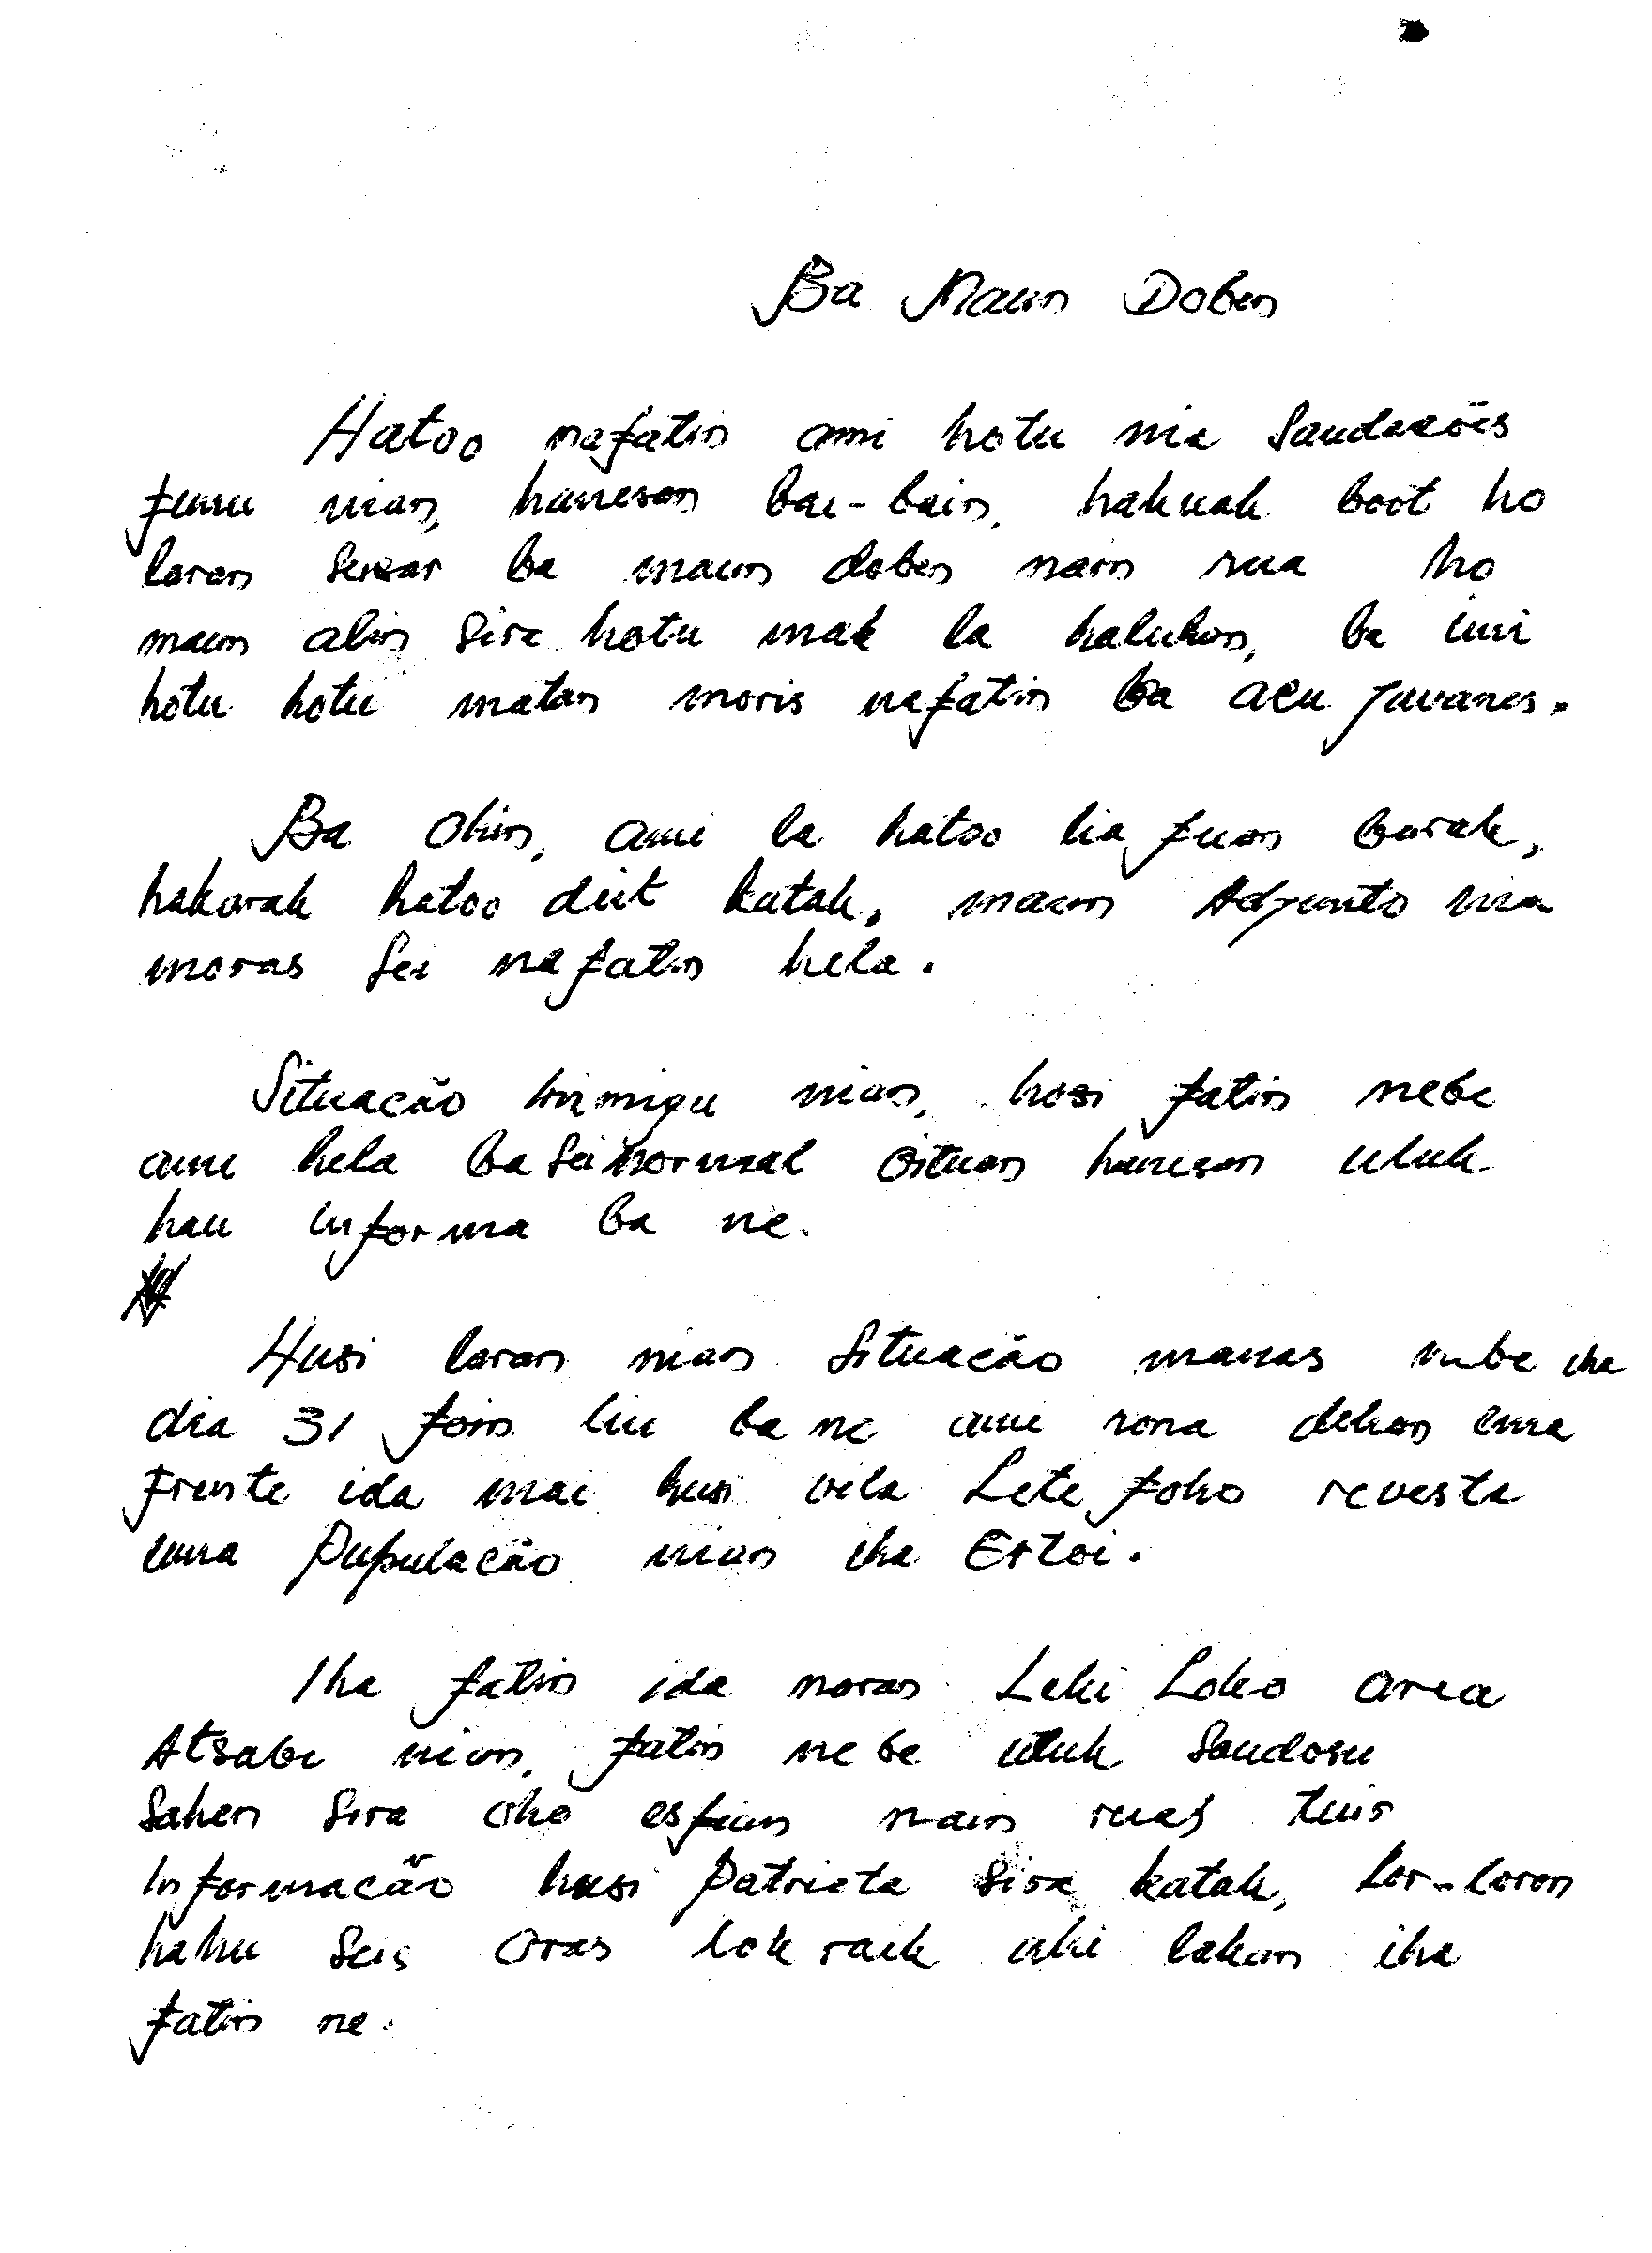 Ba Maun Doben
Hatoo nafatin ami hotu nia Saudacões
funu nian, hanesan bai-bain, hakuak boot ho
laran susar ba maun doben nain rua ho
maun alin sira hotu mak la haluhan, ba imi
hotu hotu matan moris nafatin ba acu javanes.
Ba Ohin, ami la hatoo lia fuan barak,
hakarak hatoo deit katak, maun Adjunto nia
moras sei nafatin hela.
Situacão inimigu nian, hosi fatin nebe
ami hela ba sei normal oituan hanesan uluk
hau informa ba ne.
Husi laran nian situacão manas nebe iha
dia 31 foin liu ba ne ami rona dehan ema
frente ida mai husi vila Lete foho revesta
uma Populacão nian iha Ertoi.
Iha fatin ida naran Leki Loko area
Atsabe nian, fatin nebe uluk Saudosu
Saken sira oho espian nain ruas tuir
Informacão husi Patriota sira katak, lor-loron
hahu seis oras lok raik ahi lakan iha
fatin ne.